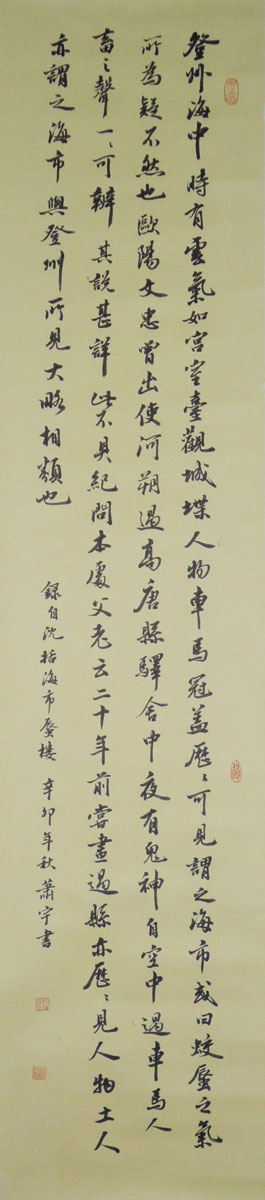 登州海中時有雲氣如宮室臺觀城堞人物車馬冠蓋歷〻可見謂之海市或曰蛟蜃之氣
所為疑不然也歐陽文忠曾出使河朔過高唐縣驛舍中夜有鬼神自空中過車馬人
畜之聲一〻可辨其說甚詳此不具紀問本處父老云二十年前嘗晝過縣亦歷〻見人物土人
亦謂之海市與登州所見大略相類也
錄自沈括海市蜃樓 辛卯年秋蕭宇書